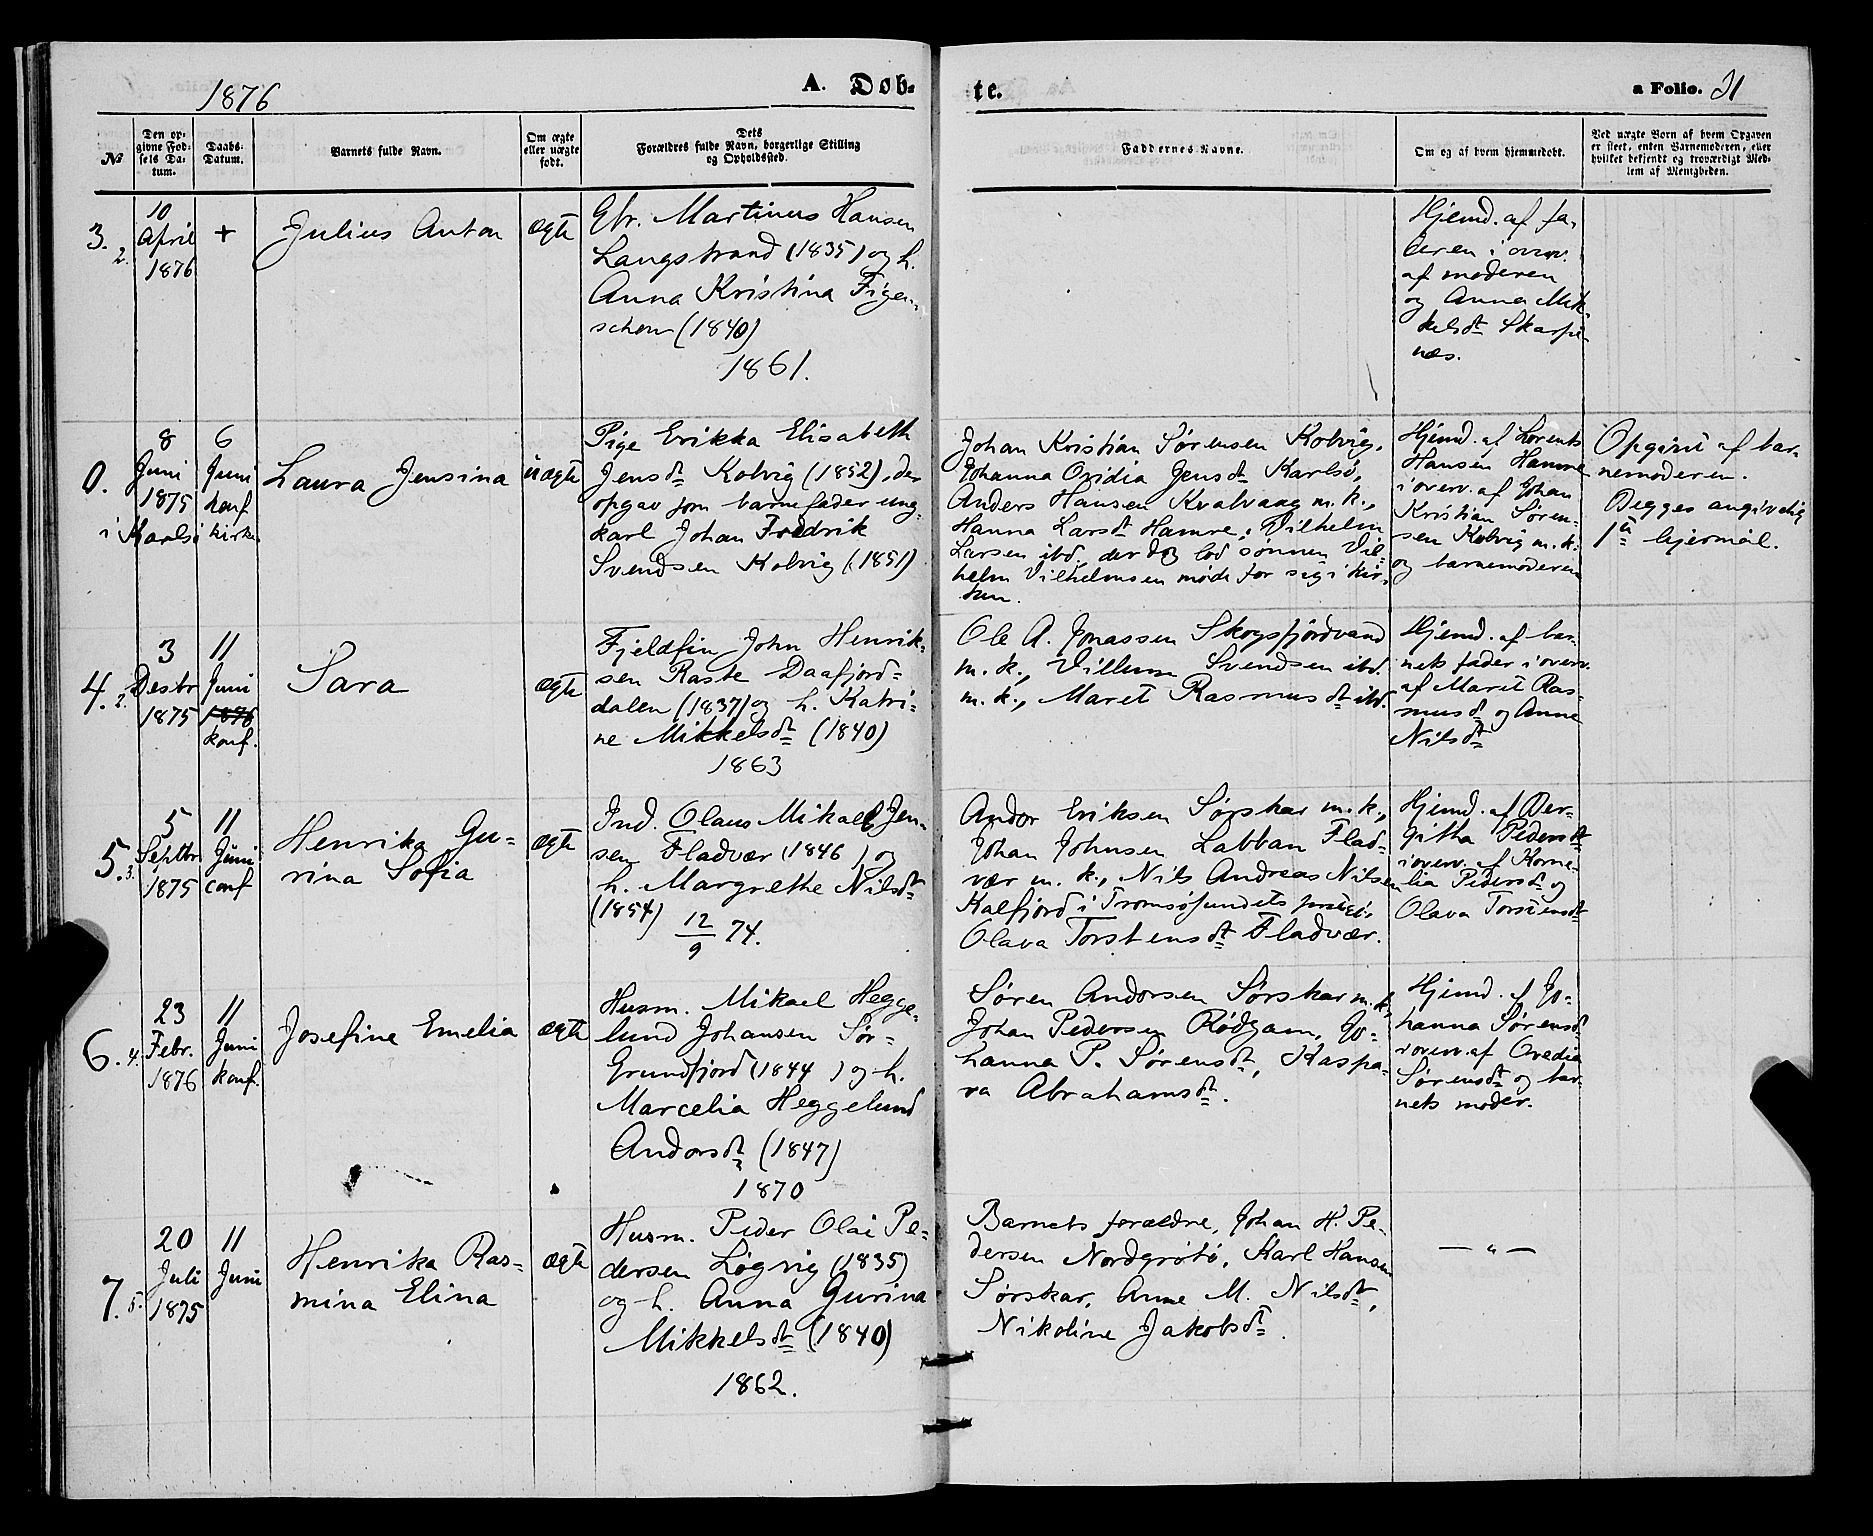 1876
A. Døb-
te.
a Folio. 21
№
Den op-
givne Fød-
sels Da-
tum.
Daabs-
Datum.
Barnets fulde Navn.
Om ægte
eller uægte
født.
Dets
Forældres fulde Navn, borgerlige Stilling
og Opholdssted.
Faddernes Navne.
Om og af hvem hjemmedøbt.
Ved uægte Børn af hvem Opgaven
er skeet, enten Barnemoderen, eller
hvilket bekjendt og troværdigt Med-
lem af Menigheden.
3. 2.
10
April
1876
+
Julius Anton
ægte
Gbr. Martinus Hansen
Langstrand (1835) og h.
Anna Kristina Figen-
schou (1840)
1861.
Hjemd. af fa-
deren i overv.
af moderen
og Anna Mik-
kelsdt Skarpe-
næs.
0.
8
Juni
1875
i Karlsø
6
Juni
konf.
kirke
Laura Jensina
uægte
Pige Erikka Elisabeth
Jensdt Kolvig (1852), der
opgav som barnefader ung-
karl Johan Fredrik
Svendsen Kolvig (1851)
Johan Kristian Sørensen Kolvig,
Johanna Ovidia Jensdt Karlsø,
Anders Hansen Kvalvaag m. k.,
Hanna Larsdt Hamre, Vilhelm
Larsen ibd, der dog lod sønnen Vil-
helm Vilhelmsen møde for sig i kir-
ken.
Hjemd. af Lorents
Hansen Hamre
i overv. af Johan
Kristian Søren-
sen Kolvig m. k.
og barnemoderen
Opgivet af bar-
nemoderen.
Begges angivelig
1te leiermål.
4. 2.
3
Desbr
1875
11
Juni
1876
konf.
Sara
ægte
Fjeldfin John Henrik-
sen Raste Daafjord-
dalen (1837) og h. Katri-
ne Mikkelsdt (1840)
1863
Ole A. Jonassen Skogsfjordvand
m. k., Villum Svendsen ibd.
m. k., Maret Rasmusdt ibd.
Hjemd. af bar-
nets fader i overv.
af Marit Ras-
musdt og Anne
Nilsdt
5. 3.
5
Septbr
1875
11
Juni
conf
Henrika Gu-
rina Sofia
ægte
Ind. Olaus Mikael Jen-
sen Fladvær (1846) og
h. Margrethe Nilsdt
(1854) 12/9 74.
Andor Eriksen Sørskar m. k.,
Johan Johnsen Labban Flad-
vær m. k., Nils Andreas Nilsen
Kalfjord i Tromsøsundets præstegj.
Olava Torstensdt Fladvær.
Hjemd. af Ber-
githa Pedersdt
i overv. af Korne-
lia Pedersdt og
Olava Torstensdt
6. 4.
23
Febr.
1876
11
Juni
konf.
Josefine Emelia
ægte
Husm. Mikael Hegge-
lund Johansen Sør-
Grundfjord (1844) og h.
Marcelia Heggelund
Andorsdt (1847)
1870
Søren Andorsen Sørskar m. k,
Johan Pedersen Rødgam, Jo-
hanna P. Sørensdt, Kaspa-
ra Abrahamsdt.
Hjemd. af Jo-
hanna Sørensdt
i overv. af Ovedia
Sørensdt og bar-
nets moder.
7. 5.
20
Juli
1875
11
Juni
Henrika Ras-
mina Elina
ægte
Husm. Peder Olai Pe-
dersen Løgvig (1835)
og h. Anna Gurina
Mikkelsdt (1840)
1862.
Barnets forældre, Johan H. Pe-
dersen Nordgrøtø, Karl Hansen
Sørskar, Anne M. Nilsdt,
Nikoline Jakobsdt.
— „ —